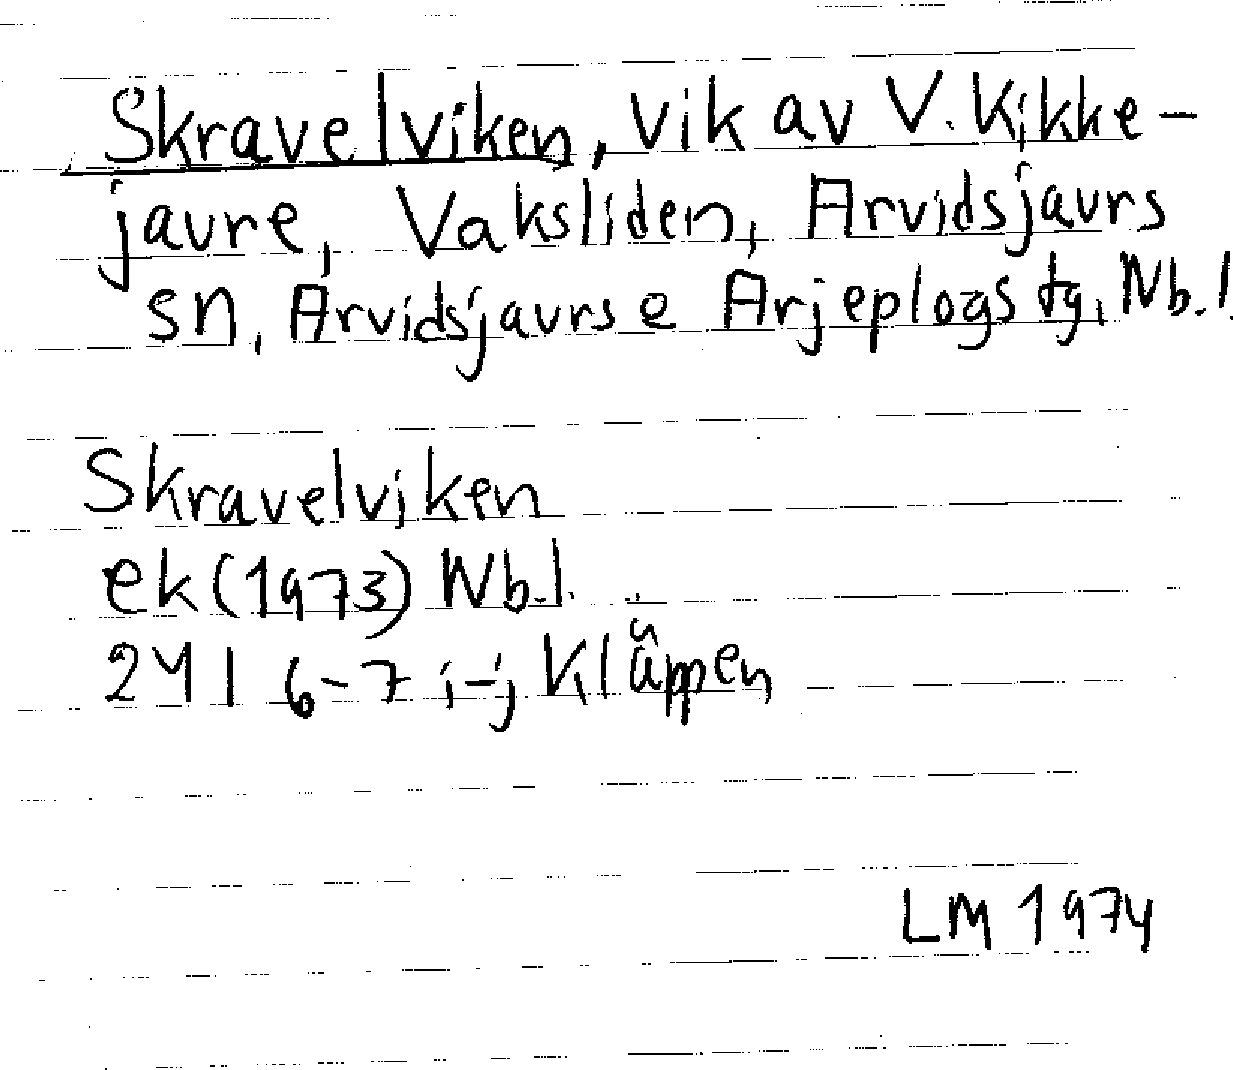 Skravelviken, vik av V. Kikke-
jaure, Vaksliden, Arvidsjaurs
sn, Arvidsjaurs e Arjeplogs tg, Nb. l.
Skravelviken
ek (1973) Nb. l.
24 I 6-7 i-j Kläppen
LM 1974